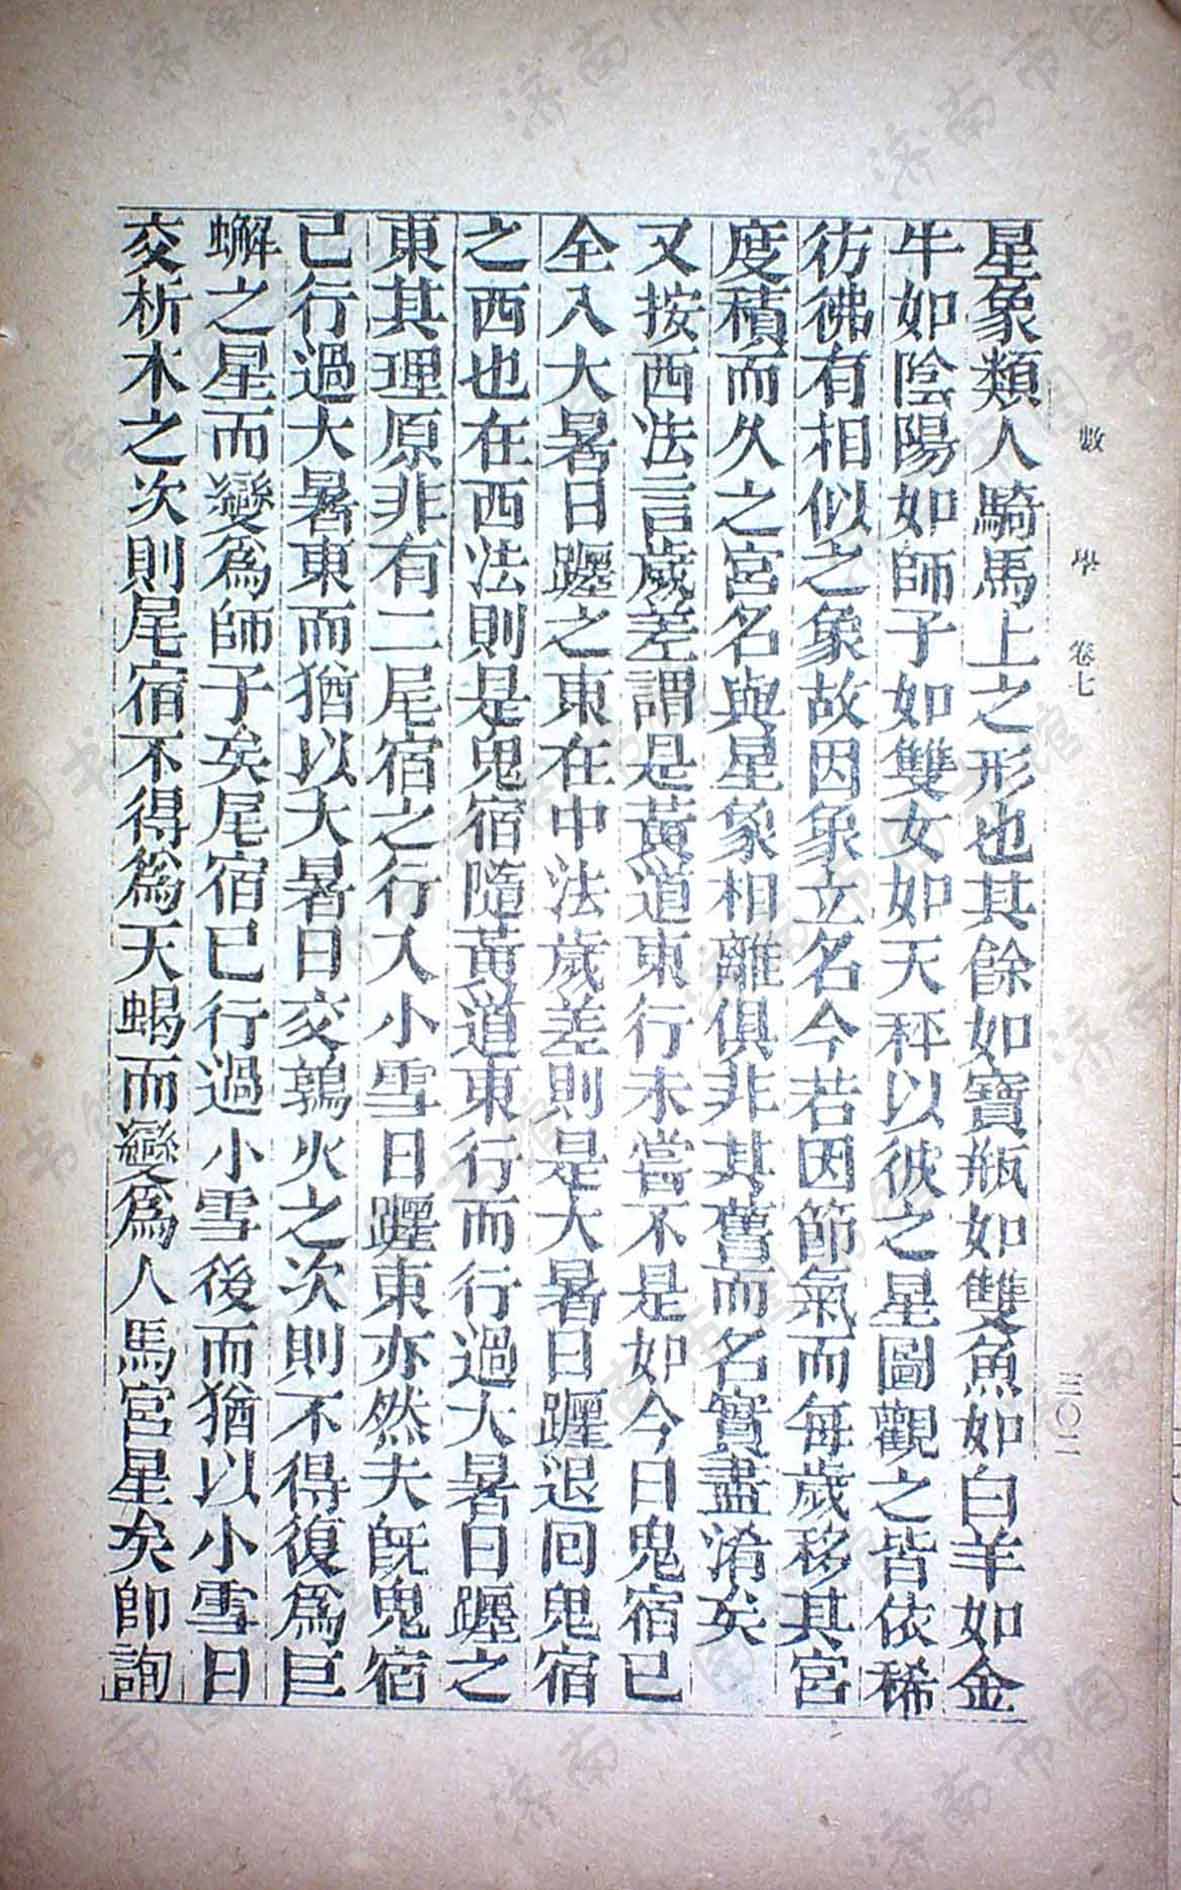 數學 卷七 三〇二
星象類人騎馬上之形也其餘如寶瓶如雙魚如白羊如金
牛如陰陽如師子如雙女如天秤以彼之星圖觀之皆依稀
彷彿有相似之象故因象立名今若因節氣而每歲移其宮
度積而久之宮名與星象相離俱非其舊而名實盡淆矣
又按西法言歲差謂是黃道東行未嘗不是如今日鬼宿已
全入大暑日躔之東在中法歲差則是大暑日躔退回鬼宿
之西也在西法則是鬼宿隨黃道東行而行過大暑日躔之
東其理原非有二尾宿之行入小雪日躔東亦然夫旣鬼宿
已行過大暑東而猶以大暑日交鶉火之次則不得復爲巨
蠏之星而變爲師子矣尾宿已行過小雪後而猶以小雪日
交析木之次則尾宿不得爲天蝎而變爲人馬宮星矣卽詢
济南市图书馆